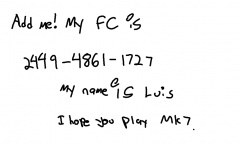 Add me! My FC is
2449-4861-1727
My name is Luis
I hope you play MK7.